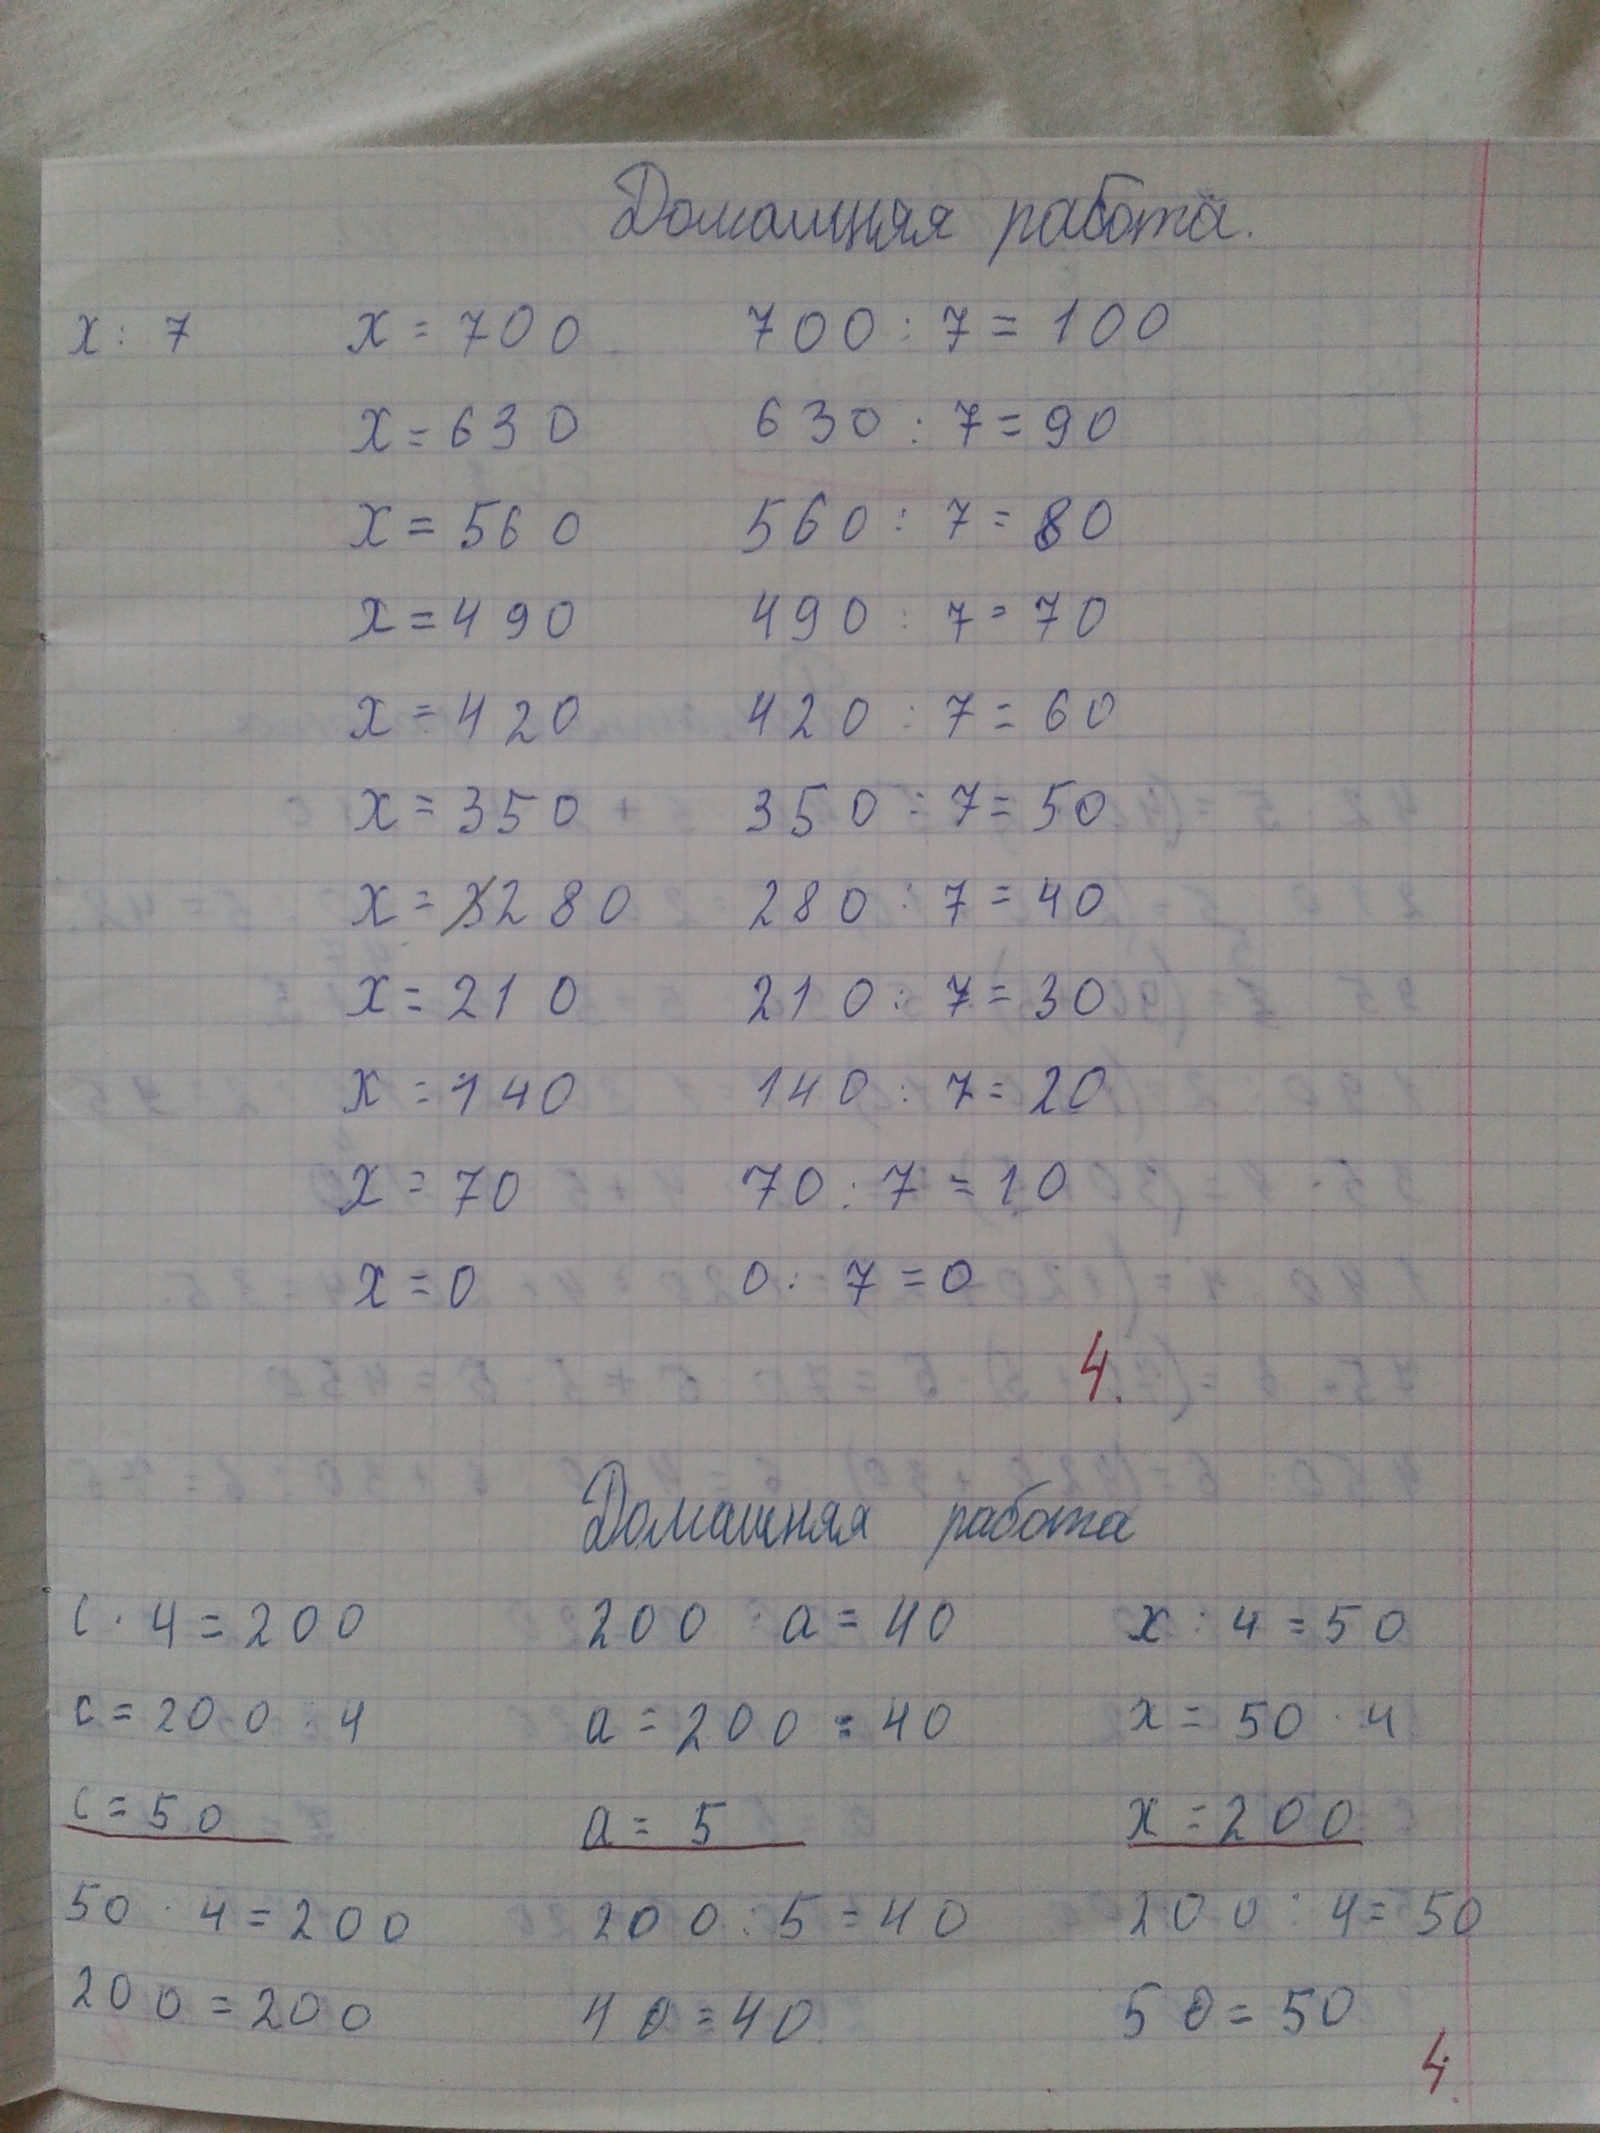 Домашняя работа.
x : 7 x = 700 700 : 7 = 100
x = 630 630 : 7 = 90
x = 560 560 : 7 = 80
x = 490 490 : 7 = 70
x = 420 420 : 7 = 60
x = 350 350 : 7 = 50
x = 280 280 : 7 = 40
x = 210 210 : 7 = 30
x = 140 140 : 7 = 20
x = 70 70 : 7 = 10
x = 0 0 : 7 = 0
4.
Домашняя работа
c · 4 = 200 200 : a = 40 x : 4 = 50
c = 200 : 4 a = 200 : 40 x = 50 · 4
c = 50 a = 5 x = 200
50 · 4 = 200 200 : 5 = 40 200 : 4 = 50
200 = 200 40 = 40 50 = 50
4.